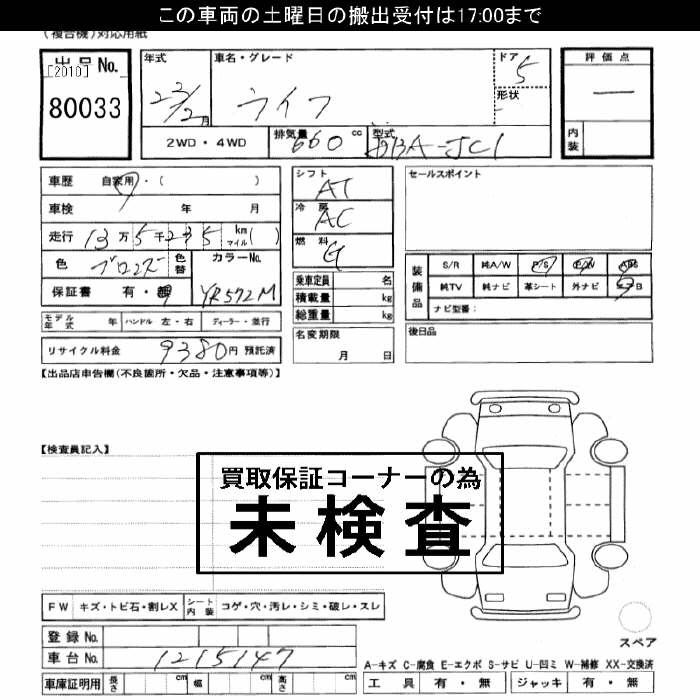 この車両の土曜日の搬出受付は17:00まで
(複合機)対応用紙
出品No.
[2010]
80033
年式
22/2月
車名・グレード
ライフ
ドア
5
形状
評価点
内装
2WD・4WD
排気量
660 cc
型式
DBA-JC1
車歴 自家用・( )
車検 年 月
走行 13万5千235 km マイル( )
色 ブロンズ 色替 カラーNo.
保証書 有・無 YR572M
モデル年式 年 ハンドル 左・右 ディーラー・並行
リサイクル料金 9380円 預託済
シフト AT
冷房 AC
燃料 G
乗車定員 名
積載量 kg
総重量 kg
名変期限
月 日
セールスポイント
装備品
S/R 純A/W P/S P/W ABS
純TV 純ナビ 革シート 外ナビ エアB
ナビ型番：
後日品
【出品店申告欄(不良箇所・欠品・注意事項等)】
【検査員記入】
買取保証コーナーの為
未検査
FW キズ・トビ石・割レX シート内装 コゲ・穴・汚レ・シミ・破レ・スレ
スペア
登録No.
車台No. 1215147
A-キズ C-腐食 E-エクボ S-サビ U-凹ミ W-補修 XX-交換済
車庫証明用 長さ cm 幅 cm 高さ cm
工具 有・無 ジャッキ 有・無